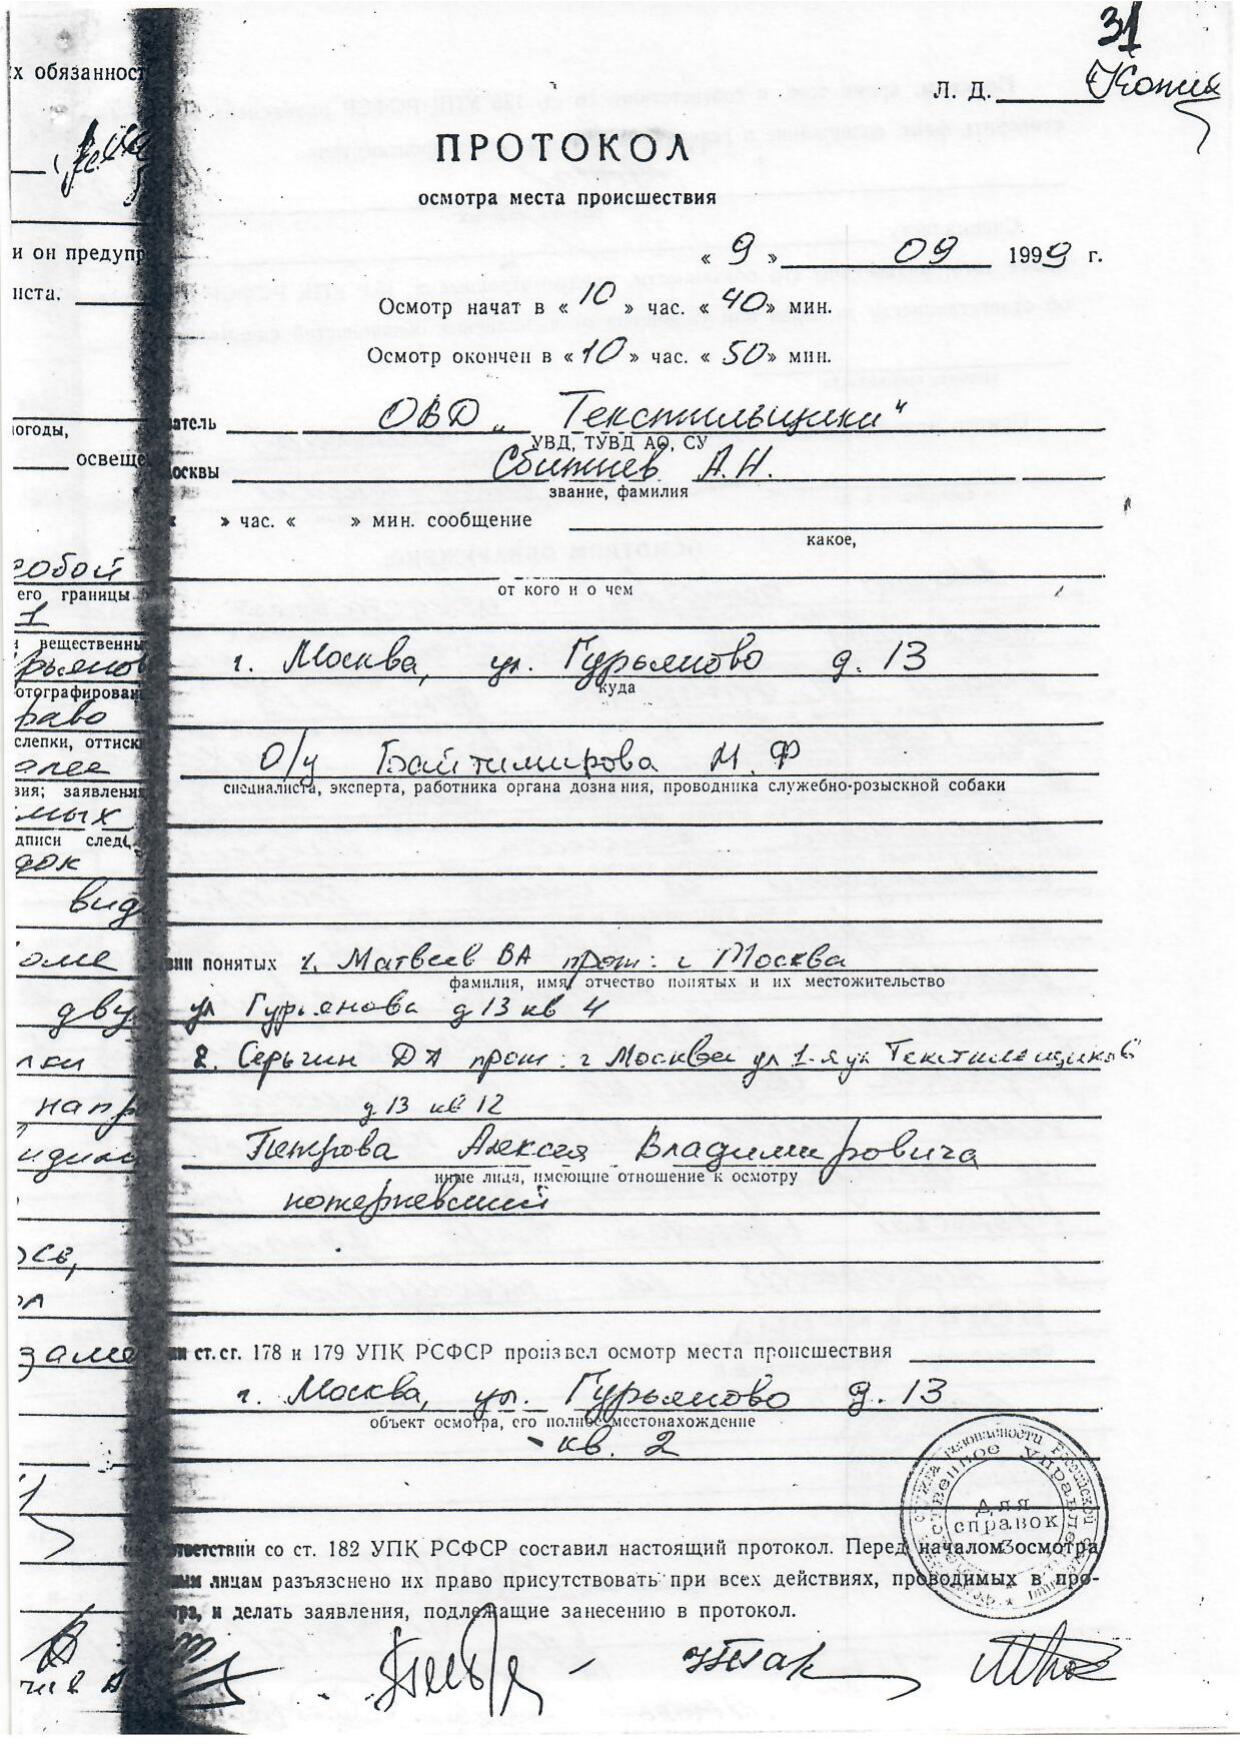 31
Л. Д.
Копия
ПРОТОКОЛ
осмотра места происшествия
« 9 » 09 1999 г.
Осмотр начат в « 10 » час. « 40 » мин.
Осмотр окончен в « 10 » час. « 50 » мин.
атель ОВД „Текстильщики“
УВД, ТУВД АО, СУ
осквы А.Н.
звание, фамилия
» час. « » мин. сообщение
какое,
от кого и о чем
г. Москва, ул. Гурьяново д. 13
куда
О/у Байтимирова М. Ф
специалиста, эксперта, работника органа дознания, проводника служебно-розыскной собаки
вии понятых 1. Матвеев ВА прож: г Москва
фамилия, имя, отчество понятых и их местожительство
ул Гурьянова д 13 кв 4
2. Серычин ДА прож: г Москва ул 1-я ул Текстильщиков
д 13 кв 12
Петрова Алексея Владимировича
иные лица, имеющие отношение к осмотру
потерпевший
ии ст.ст. 178 и 179 УПК РСФСР произвел осмотр места происшествия
г. Москва, ул. Гурьяново д. 13
объект осмотра, его полное местонахождение
кв. 2
ответствии со ст. 182 УПК РСФСР составил настоящий протокол. Перед началом осмотра
ным лицам разъяснено их право присутствовать при всех действиях, проводимых в про-
тра, и делать заявления, подлежащие занесению в протокол.
для
справок
3
х обязанност
и он предупр
иста.
погоды,
освеще
собой
его границы
1
вещественны
рьянов
отографирован
право
слепки, оттиск
алее
ия; заявления
мых
дписи след
док
вид
оме
дву
лки
напр
ось,
заме